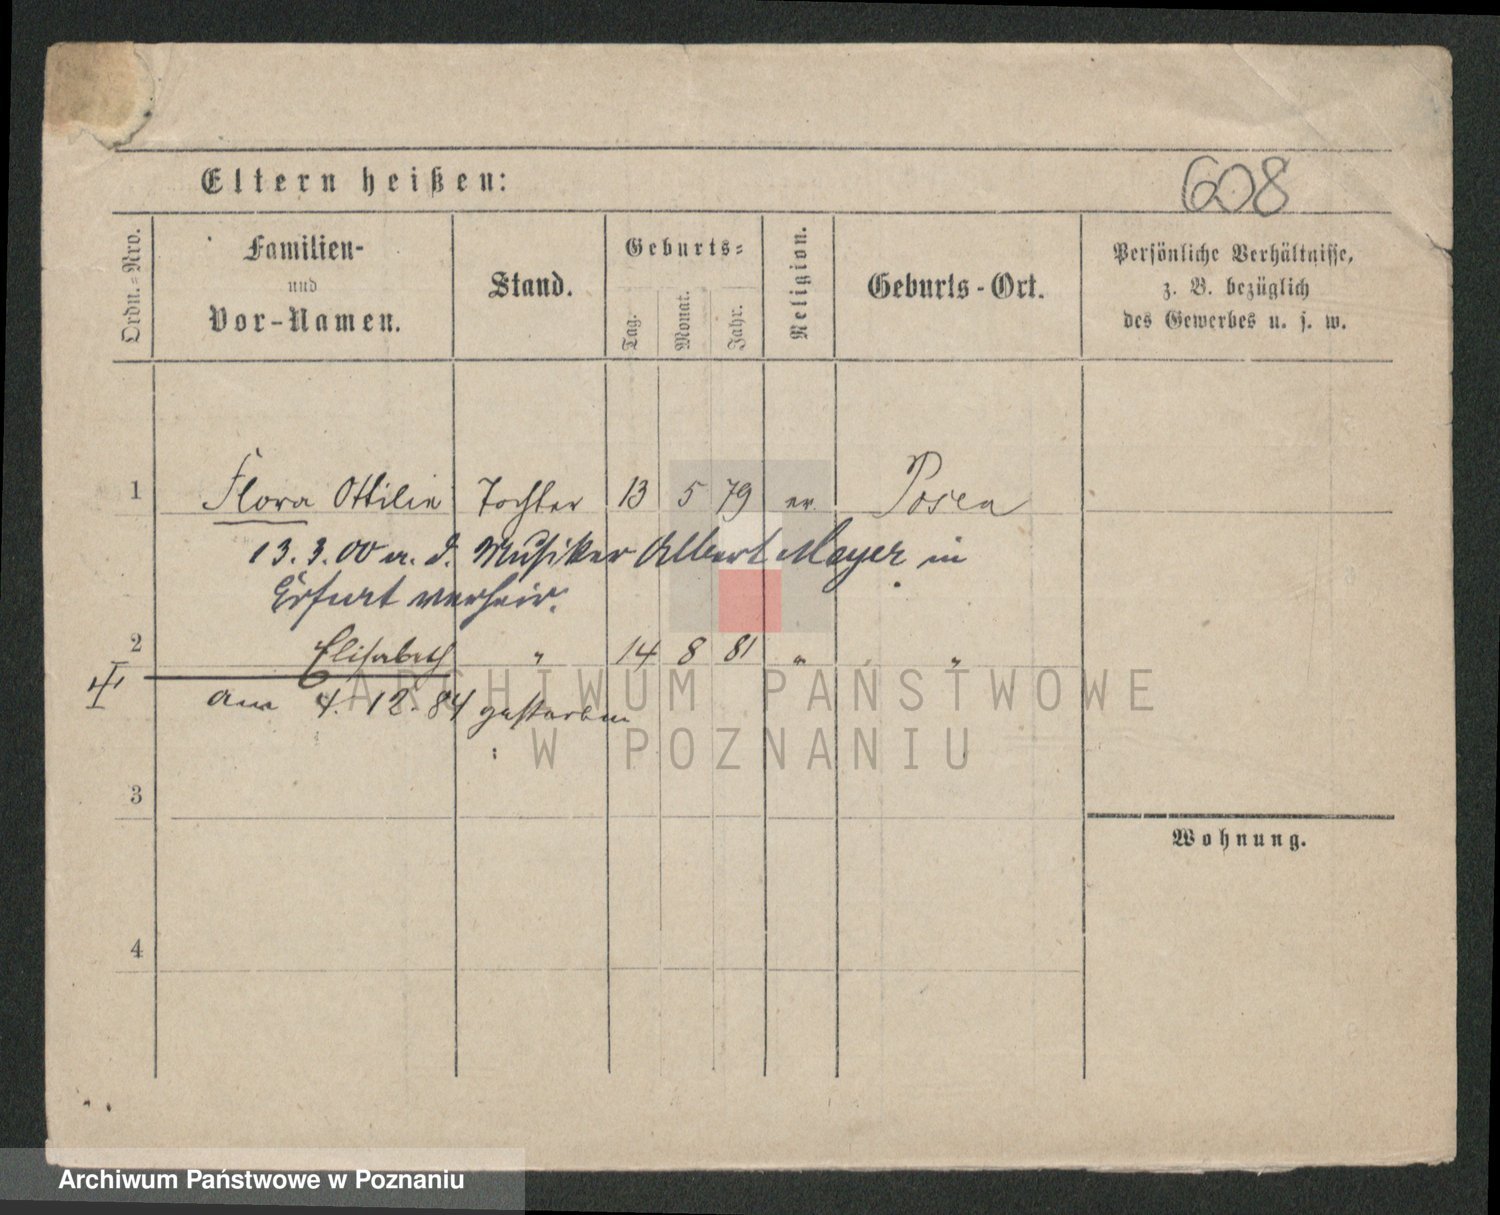 Eltern heißen:
608
Ordn.-Nro.
Familien-
und
Vor-Namen.
Stand.
Geburts-
Tag.
Monat.
Jahr.
Religion.
Geburts-Ort.
Persönliche Verhältnisse,
z. B. bezüglich
des Gewerbes u. s. w.
1 Flora Ottilie Tochter 13 5 79 ev. Posen
13.3.00 m. d. Musiker Albert Mayer in
Erfurt verheir.
2 Elisabeth " 14 8 81 " "
am 4. 12. 84 gestorben
3
4
Wohnung.
ARCHIWUM PAŃSTWOWE
W POZNANIU
Archiwum Państwowe w Poznaniu